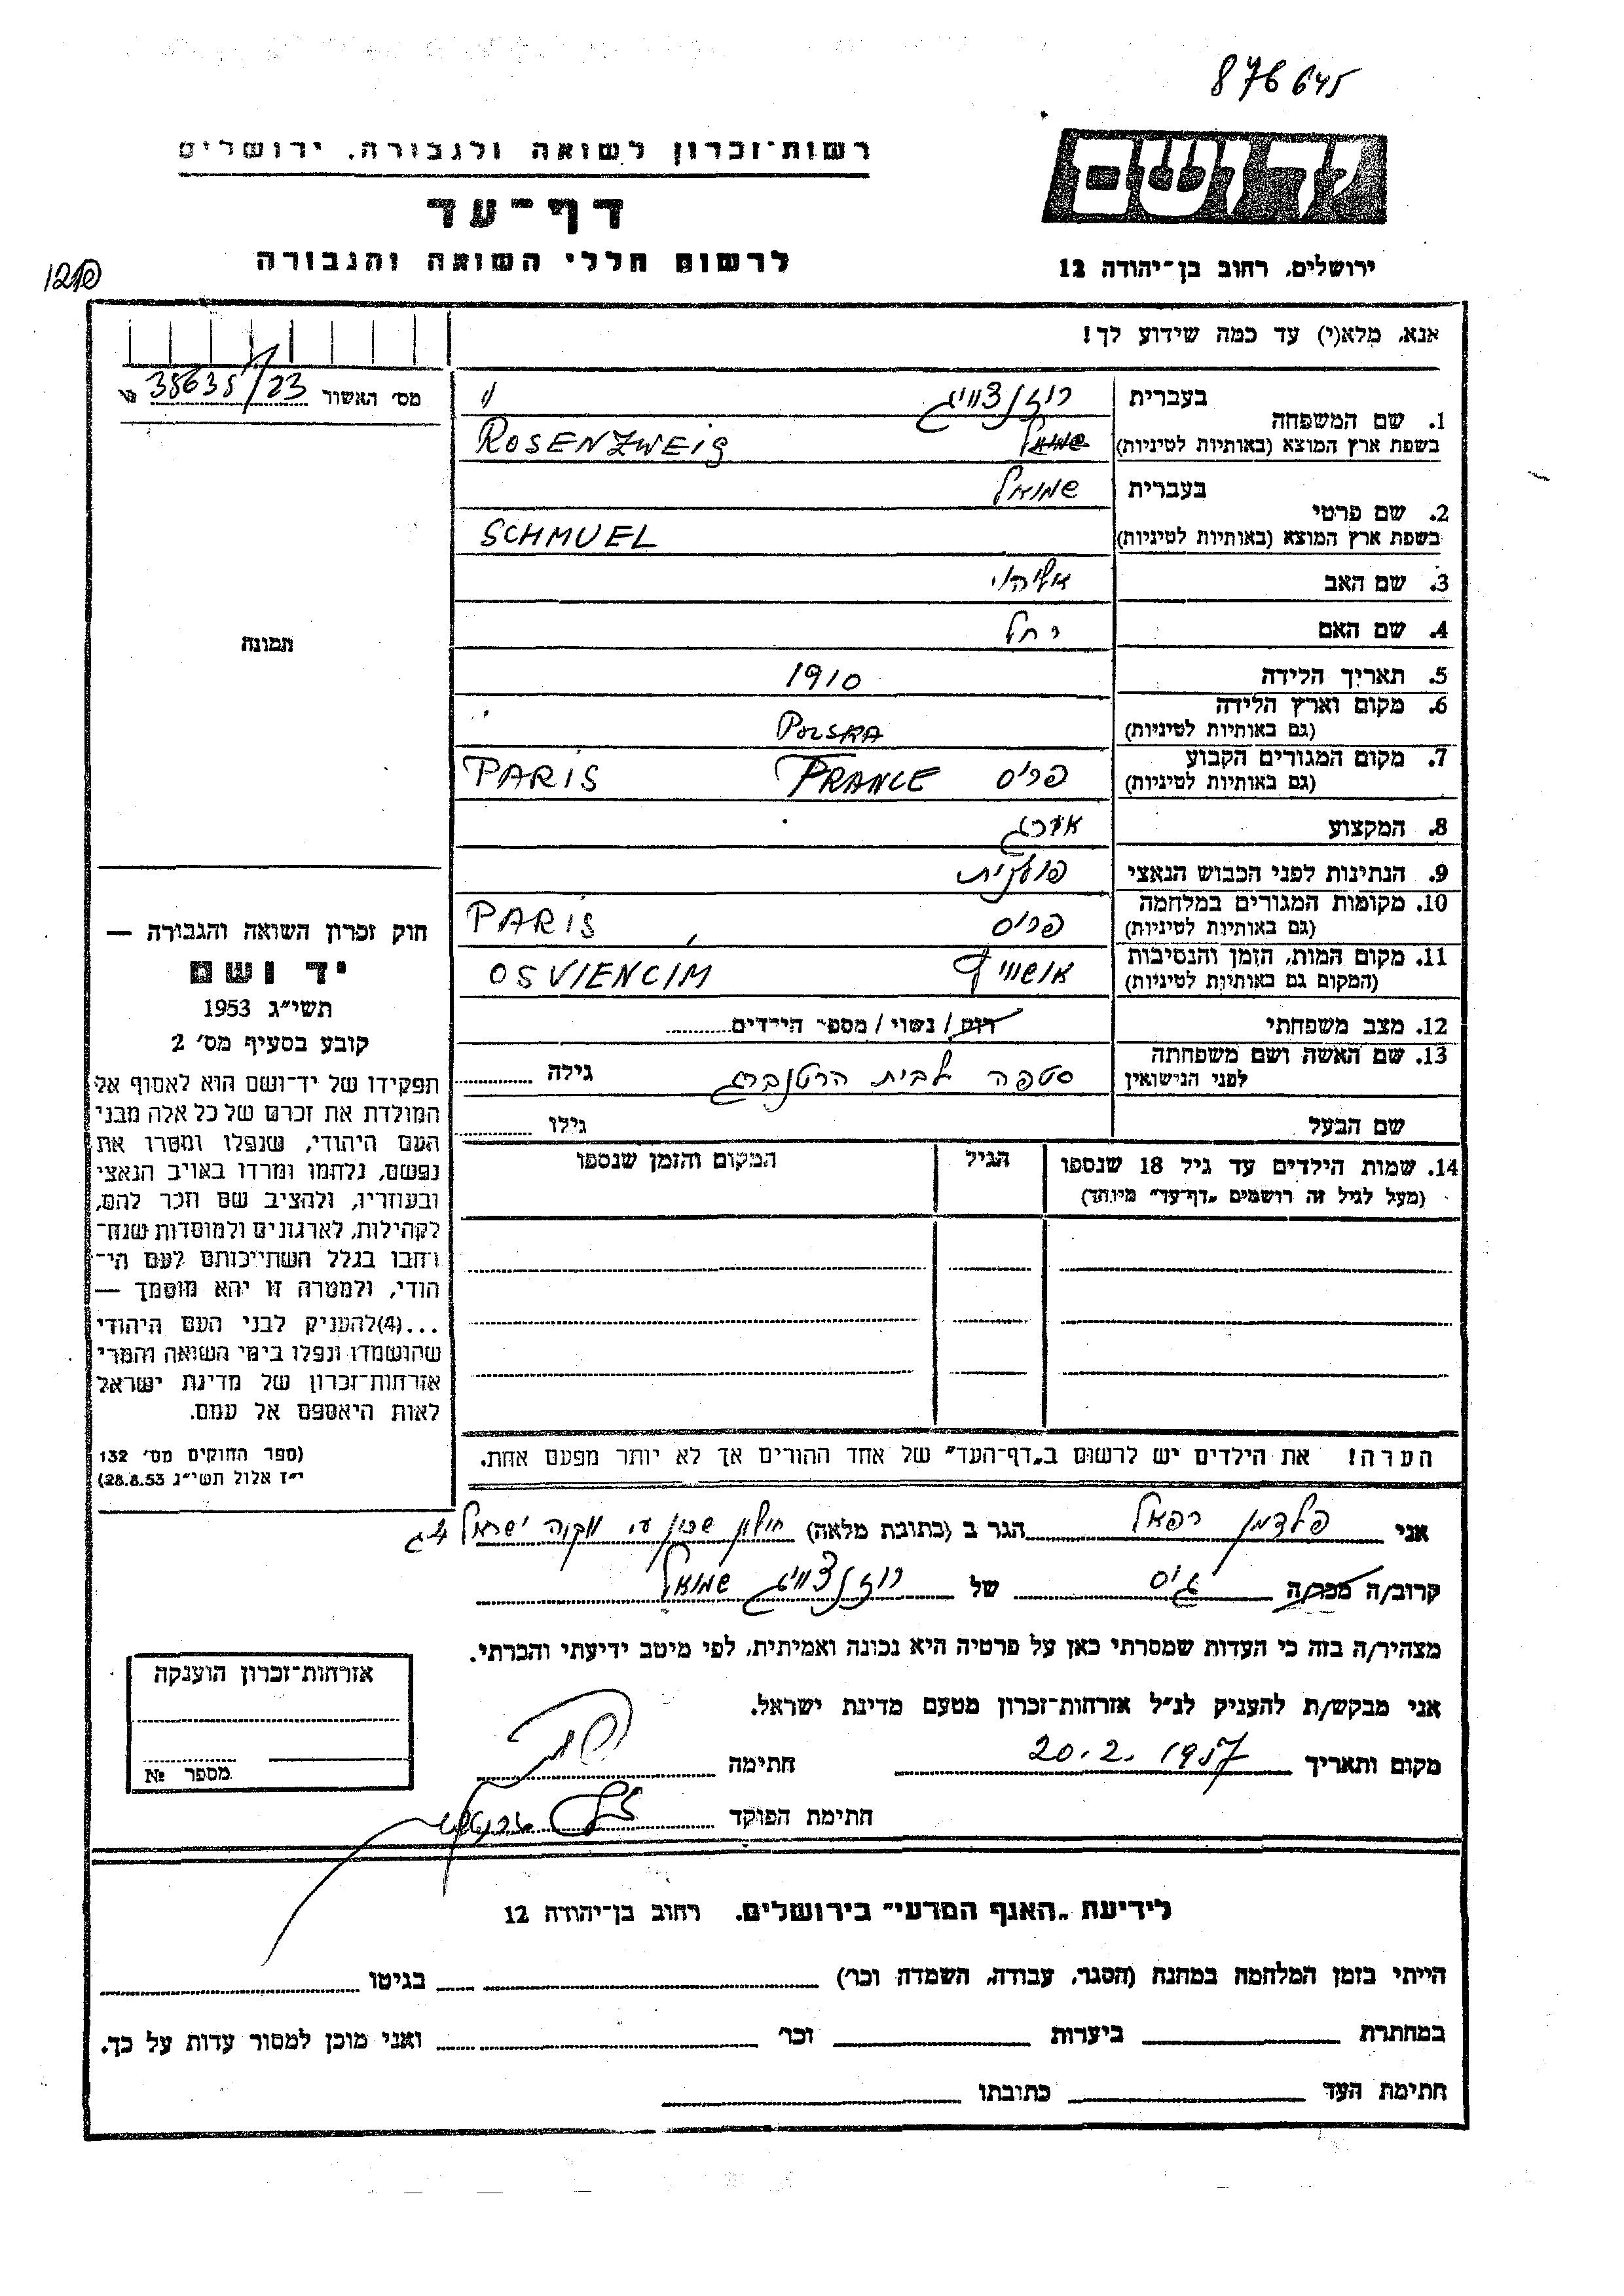 876645
רשות־זכרון לשואה ולגבורה, ירושלים
יד ושם
דף־עד
לרשום חללי השואה והגבורה
ירושלים, רחוב בן־יהודה 12
אנא, מלא(י) עד כמה שידוע לך!
מס׳ האשור 38635/123 №
1. שם המשפחה
בעברית רוזנצווייג
בשפת ארץ המוצא (באותיות לטיניות) ROSENZWEIG
2. שם פרטי
בעברית שמואל
בשפת ארץ המוצא (באותיות לטיניות) SCHMUEL
3. שם האב אליהו
4. שם האם רחל
תמונה
5. תאריך הלידה 1910
6. מקום וארץ הלידה
(גם באותיות לטיניות) POLSKA
7. מקום המגורים הקבוע פריס FRANCE PARIS
(גם באותיות לטיניות)
8. המקצוע אורג
9. הנתינות לפני הכבוש הנאצי פולנית
10. מקומות המגורים במלחמה פריס PARIS
(גם באותיות לטיניות)
11. מקום המות, הזמן והנסיבות אושוויץ OSVIENCIM
(המקום גם באותיות לטיניות)
12. מצב משפחתי רווק / נשוי / מספר הילדים
13. שם האשה ושם משפחתה
לפני הנישואין סטפה לבית הרטנברג גילה
שם הבעל גילו
14. שמות הילדים עד גיל 18 שנספו הגיל המקום והזמן שנספו
(מעל לגיל זה רושמים „דף־עד” מיוחד)
חוק זכרון השואה והגבורה —
יד ושם
תשי״ג 1953
קובע בסעיף מס׳ 2
תפקידו של יד־ושם הוא לאסוף אל
המולדת את זכרם של כל אלה מבני
העם היהודי, שנפלו ומסרו את
נפשם, נלחמו ומרדו באויב הנאצי
ובעוזריו, ולהציב שם וזכר להם,
לקהילות, לארגונים ולמוסדות שנח־
רבו בגלל השתייכותם לעם הי־
הודי, ולמטרה זו יהא מוסמך —
...(4)להעניק לבני העם היהודי
שהושמדו ונפלו בימי השואה והמרי
אזרחות־זכרון של מדינת ישראל
לאות היאספם אל עמם.
(ספר החוקים מס׳ 132
י״ז אלול תשי״ג 28.8.53)
הערה! את הילדים יש לרשום ב„דף־העד” של אחד ההורים אך לא יותר מפעם אחת.
אני פלדמן רפאל הגר ב (כתובת מלאה) חולון שכון מקוה ישראל
קרוב/ה מכר/ה גיס של רוזנצווייג שמואל
מצהיר/ה בזה כי העדות שמסרתי כאן על פרטיה היא נכונה ואמיתית, לפי מיטב ידיעתי והכרתי.
אני מבקש/ת להעניק לנ״ל אזרחות־זכרון מטעם מדינת ישראל.
מקום ותאריך 20.2.1957 חתימה
חתימת הפוקד
אזרחות־זכרון הוענקה
מספר №
לידיעת „האגף המדעי” בירושלים, רחוב בן־יהודה 12
הייתי בזמן המלחמה במחנה (הסגר, עבודה, השמדה וכו׳) בגיטו
במחתרת ביערות וכו׳ ואני מוכן למסור עדות על כך.
חתימת העד כתובתו